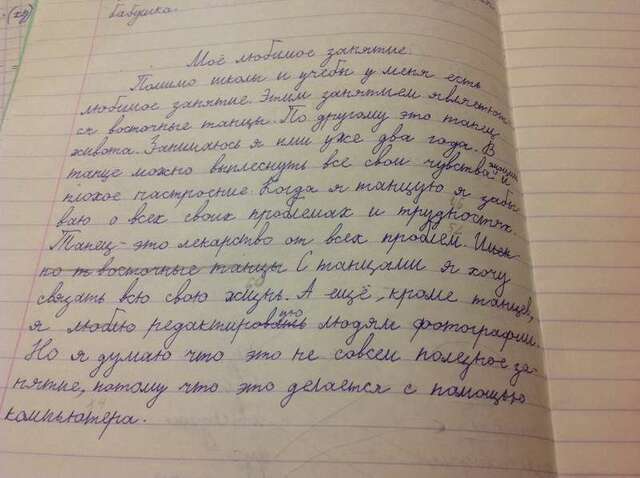 бабушка.
Моё любимое занятие.
Помимо школы и учёбы у меня есть
любимое занятие. Этим занятием являют
ся восточные танцы. По другому это танец
живота. Занимаюсь я ими уже два года. В
танце можно выплеснуть все свои чувства эмоции и
плохое настроение. Когда я танцую я забы
ваю о всех своих проблемах и трудностях.
Танец - это лекарство от всех проблем. Имен
но восточные танцы С танцами я хочу
связать всю свою жизнь. А ещё, кроме танцев,
я люблю редактирую людям фотографии.
Но я думаю что это не совсем полезное за-
нятие, потому что это делается с помощью
компьютера.